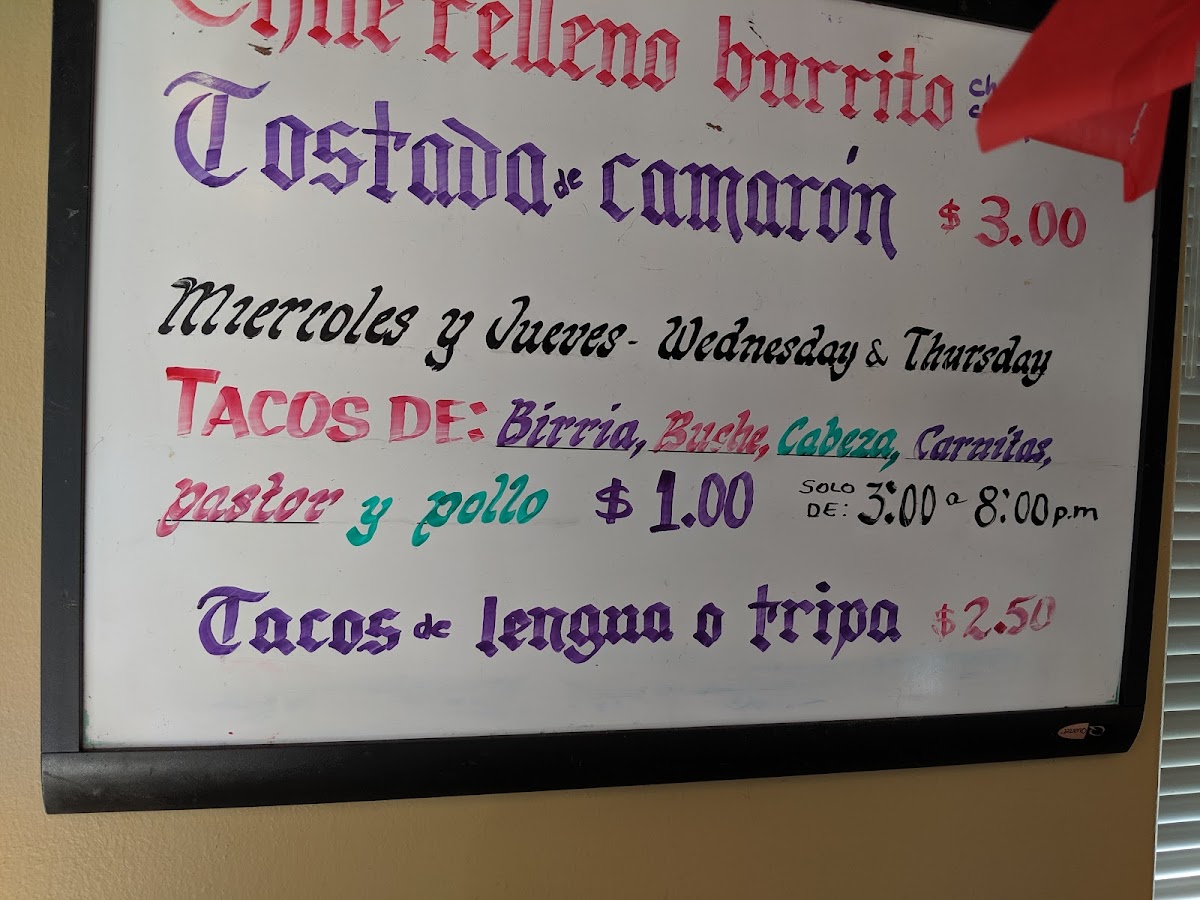 Chile relleno burrito
Tostada de camarón $3.00
Miercoles y Jueves - Wednesday & Thursday
TACOS DE: Birria, Buche, Cabeza, Carnitas,
pastor y pollo $1.00 SOLO DE: 3:00 a 8:00 p.m
Tacos de lengua o tripa $2.50
Quartet